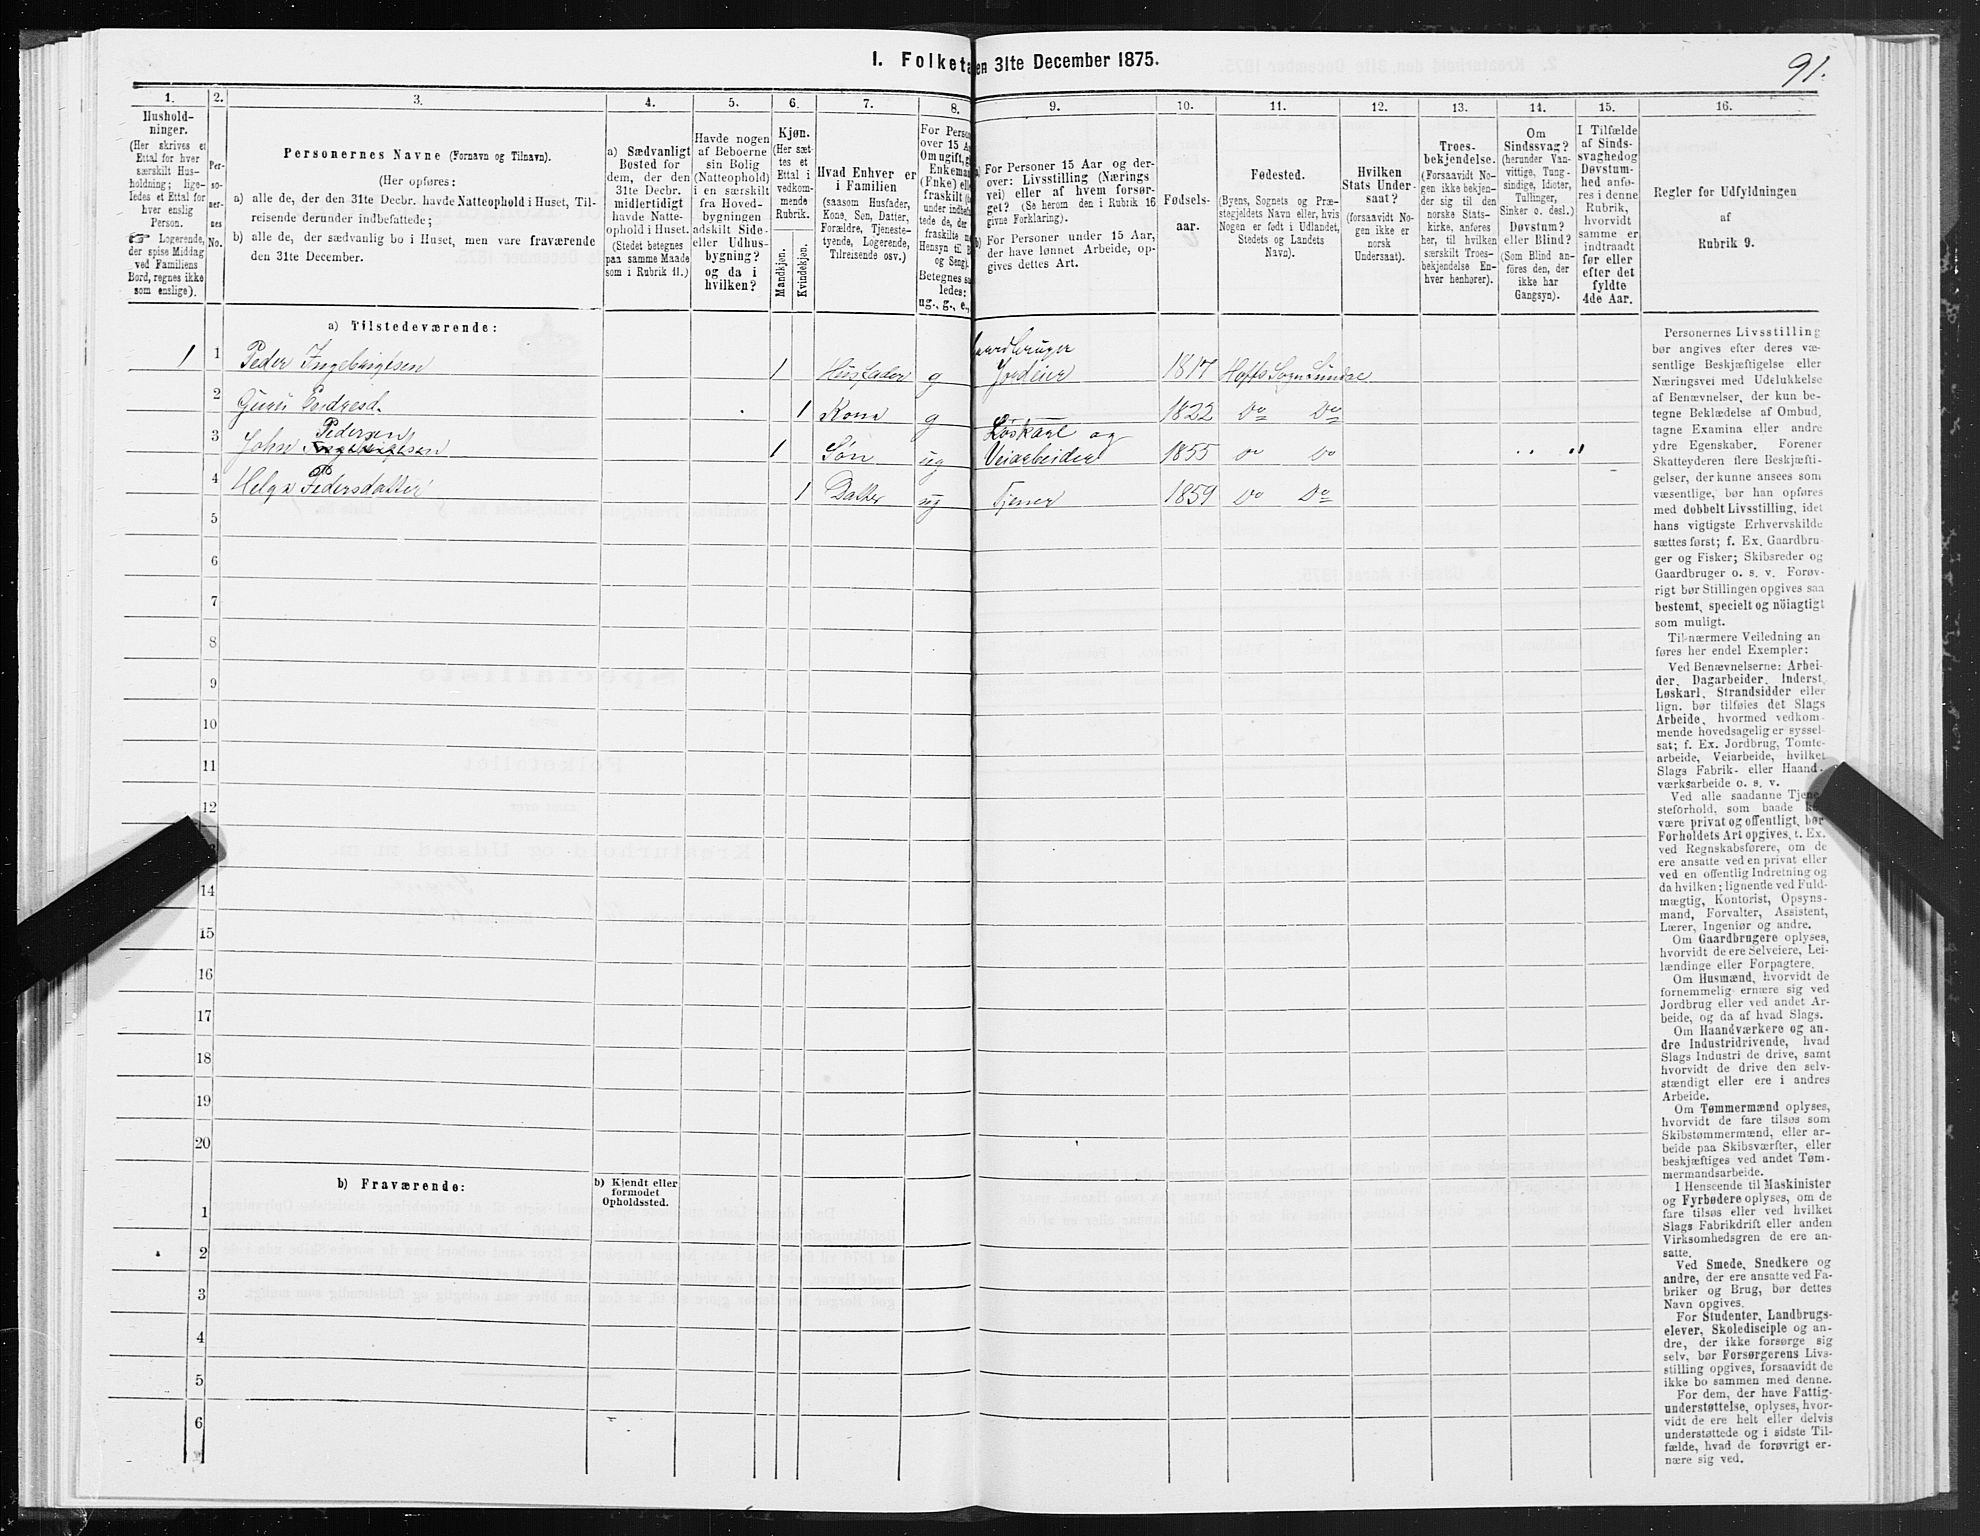 91.
I. Folketa en 31te December 1875.
1. 2. 3. 4. 5. 6. 7. 8. 9. 10. 11. 12. 13. 14. 15. 16.
Hushold-
ninger.
(Her skrives et
Ettal for hver
særskilt Hus-
holdning; lige-
ledes et Ettal for
hver enslig
Person.
☞ Logerende,
der spise Middag
ved Familiens
Bord, regnes ikke
som enslige).
Per-
so-
ner-
nes
No.
Personernes Navne (Fornavn og Tilnavn).
(Her opføres:
a) alle de, der den 31te Decbr. havde Natteophold i Huset, Til-
reisende derunder indbefattede;
b) alle de, der sædvanlig bo i Huset, men vare fraværende
den 31te December.
a) Sædvanligt
Bosted for
dem, der den
31te Decbr.
midlertidigt
havde Natte-
ophold i Huset.
(Stedet betegnes
paa samme Maade
som i Rubrik 11.)
Havde nogen
af Beboerne
sin Bolig
(Natteophold)
i en særskilt
fra Hoved-
bygningen
adskilt Side-
eller Udhus-
bygning?
og da i
hvilken?
Kjøn.
(Her sæt-
tes et
Ettal i
vedkom-
mende
Rubrik.
Mandkjøn.
Kvindekjøn.
Hvad Enhver er
i Familien
(saasom Husfader,
Kone, Søn, Datter,
Forældre, Tjeneste-
tyende, Logerende,
Tilreisende osv.)
For Person
over 15 A
Om ugift, g
Enkeman
(Enke) ell
fraskilt
under indbef
tede de, der
fraskilte m
Hensyn til B
og Seng).
Betegnes sa
ledes:
ug., g., e.,
a) For Personer 15 Aar og der-
over: Livsstilling (Nærings
vei) eller af hvem forsør-
get? (Se herom den i Rubrik 16
givne Forklaring).
b) For Personer under 15 Aar,
der have lønnet Arbeide, op-
gives dettes Art.
Fødsels-
aar.
Fødested.
(Byens, Sognets og Præ-
stegjeldets Navn eller, hvis
Nogen er født i Udlandet,
Stedets og Landets
Navn).
Hvilken
Stats Under-
saat?
(forsaavidt No-
gen ikke er
norsk
Undersaat).
Troes-
bekjendelse.
(Forsaavidt No-
gen ikke bekjen-
der sig til den
norske Stats-
kirke, anføres
her, til hvilken
særskilt Troes-
bekjendelse En-
hver henhører).
Om
Sindssvag?
(herunder Van-
vittige, Tung-
sindige, Idioter,
Tullinger,
Sinker o. desl.)
Døvstum?
eller Blind?
(Som Blind an-
føres den, der
ikke har
Gangsyn).
I Tilfælde
af Sinds-
svaghed og
Døvstum-
hed anfø-
res i denne
Rubrik,
hvorvidt
samme er
indtraadt
før eller
efter det
fyldte
4de Aar.
Regler for Udfyldningen
af
Rubrik 9.
a) Tilstedeværende:
1 1 Peder Ingebrigtsen 1 Husfader g Gaardbruger Jordeier 1817 Hoffs Sogn Sundae
2 Guru Endresd. 1 Kone g 1822 Do Do
3 John Pedersen Ingebrigtsen 1 Søn ug Løskarl og Veiarbeider 1855 Do Do
4 Helga Pedersdatter 1 Datter ug Tjener 1859 Do Do
5
6
7
8
9
10
11
12
14
15
16
17
18
19
20
b) Fraværende:
b) Kjendt eller
formodet
Opholdssted.
1
2
3
4
5
6
Personernes Livsstilling
bør angives efter deres væ-
sentlige Beskjæftigelse eller
Næringsvei med Udelukkelse
af Benævnelser, der kun be-
tegne Beklædelse af Ombud,
tagne Examina eller andre
ydre Egenskaber. Forener
Skatteyderen flere Beskjæfti-
gelser, der kunne ansees som
væsentlige, bør han opføres
med dobbelt Livsstilling, idet
hans vigtigste Erhvervskilde
sættes først; f. Ex. Gaardbru-
ger og Fisker; Skibsreder og
Gaardbruger o. s. v. Forøv-
rigt bør Stillingen opgives saa
bestemt, specielt og nöiagtigt
som muligt.
Til nærmere Veiledning an
føres her endel Exempler:
Ved Benævnelserne: Arbei-
der, Dagarbeider, Inderst,
Løskarl, Strandsidder eller
lign. bør tilføies det Slags
Arbeide, hvormed vedkom-
mende hovedsagelig er syssel-
sat; f. Ex. Jordbrug, Tomte-
arbeide, Veiarbeide, hvilket
Slags Fabrik- eller Haand-
værksarbeide o. s. v.
Ved alle saadanne Tjene-
steforhold, som baade k
være privat og offentligt, bør
Forholdets Art opgives, t. Ex.
ved Regnskabsførere, om de
ere ansatte ved en privat eller
ved en offentlig Indretning og
da hvilken; lignende ved Fuld-
mægtig, Kontorist, Opsyns-
mand, Forvalter, Assistent,
Lærer, Ingeniør og andre.
Om Gaardbrugere oplyses,
hvorvidt de ere Selveiere, Lei-
lændinge eller Forpagtere.
Om Husmænd, hvorvidt de
fornemmelig ernære sig ved
Jordbrug eller ved andet Ar-
beide, og da af hvad Slags.
Om Haandværkere og an-
dre Industridrivende, hvad
Slags Industri de drive, samt
hvorvidt de drive den selv-
stændigt eller ere i andres
Arbeide.
Om Tømmermænd oplyses,
hvorvidt de fare tilsøs som
Skibstømmermænd, eller ar-
beide paa Skibsværfter, eller
beskjæftiges ved andet Tøm-
mermandsarbeide.
I Henseende til Maskinister
og Fyrbødere oplyses, om de
fare tilsøs eller ved hvilket
Slags Fabrikdrift eller anden
Virksomhedsgren de ere an-
satte.
Ved Smede, Snedkere og
andre, der ere ansatte ved Fa-
briker og Brug, bør dettes
Navn opgives.
For Studenter, Landbrugs-
elever, Skoledisciple og an-
dre, der ikke forsørge sig
selv, bør Forsørgerens Livs-
stilling opgives, forsaavidt de
ikke bo sammen med denne.
For dem, der have Fattig-
understøttelse, oplyses, hvor-
vidt de ere helt eller delvis
understøttede og i sidste Til-
fælde, hvad de forøvrigt er-
nære sig ved.